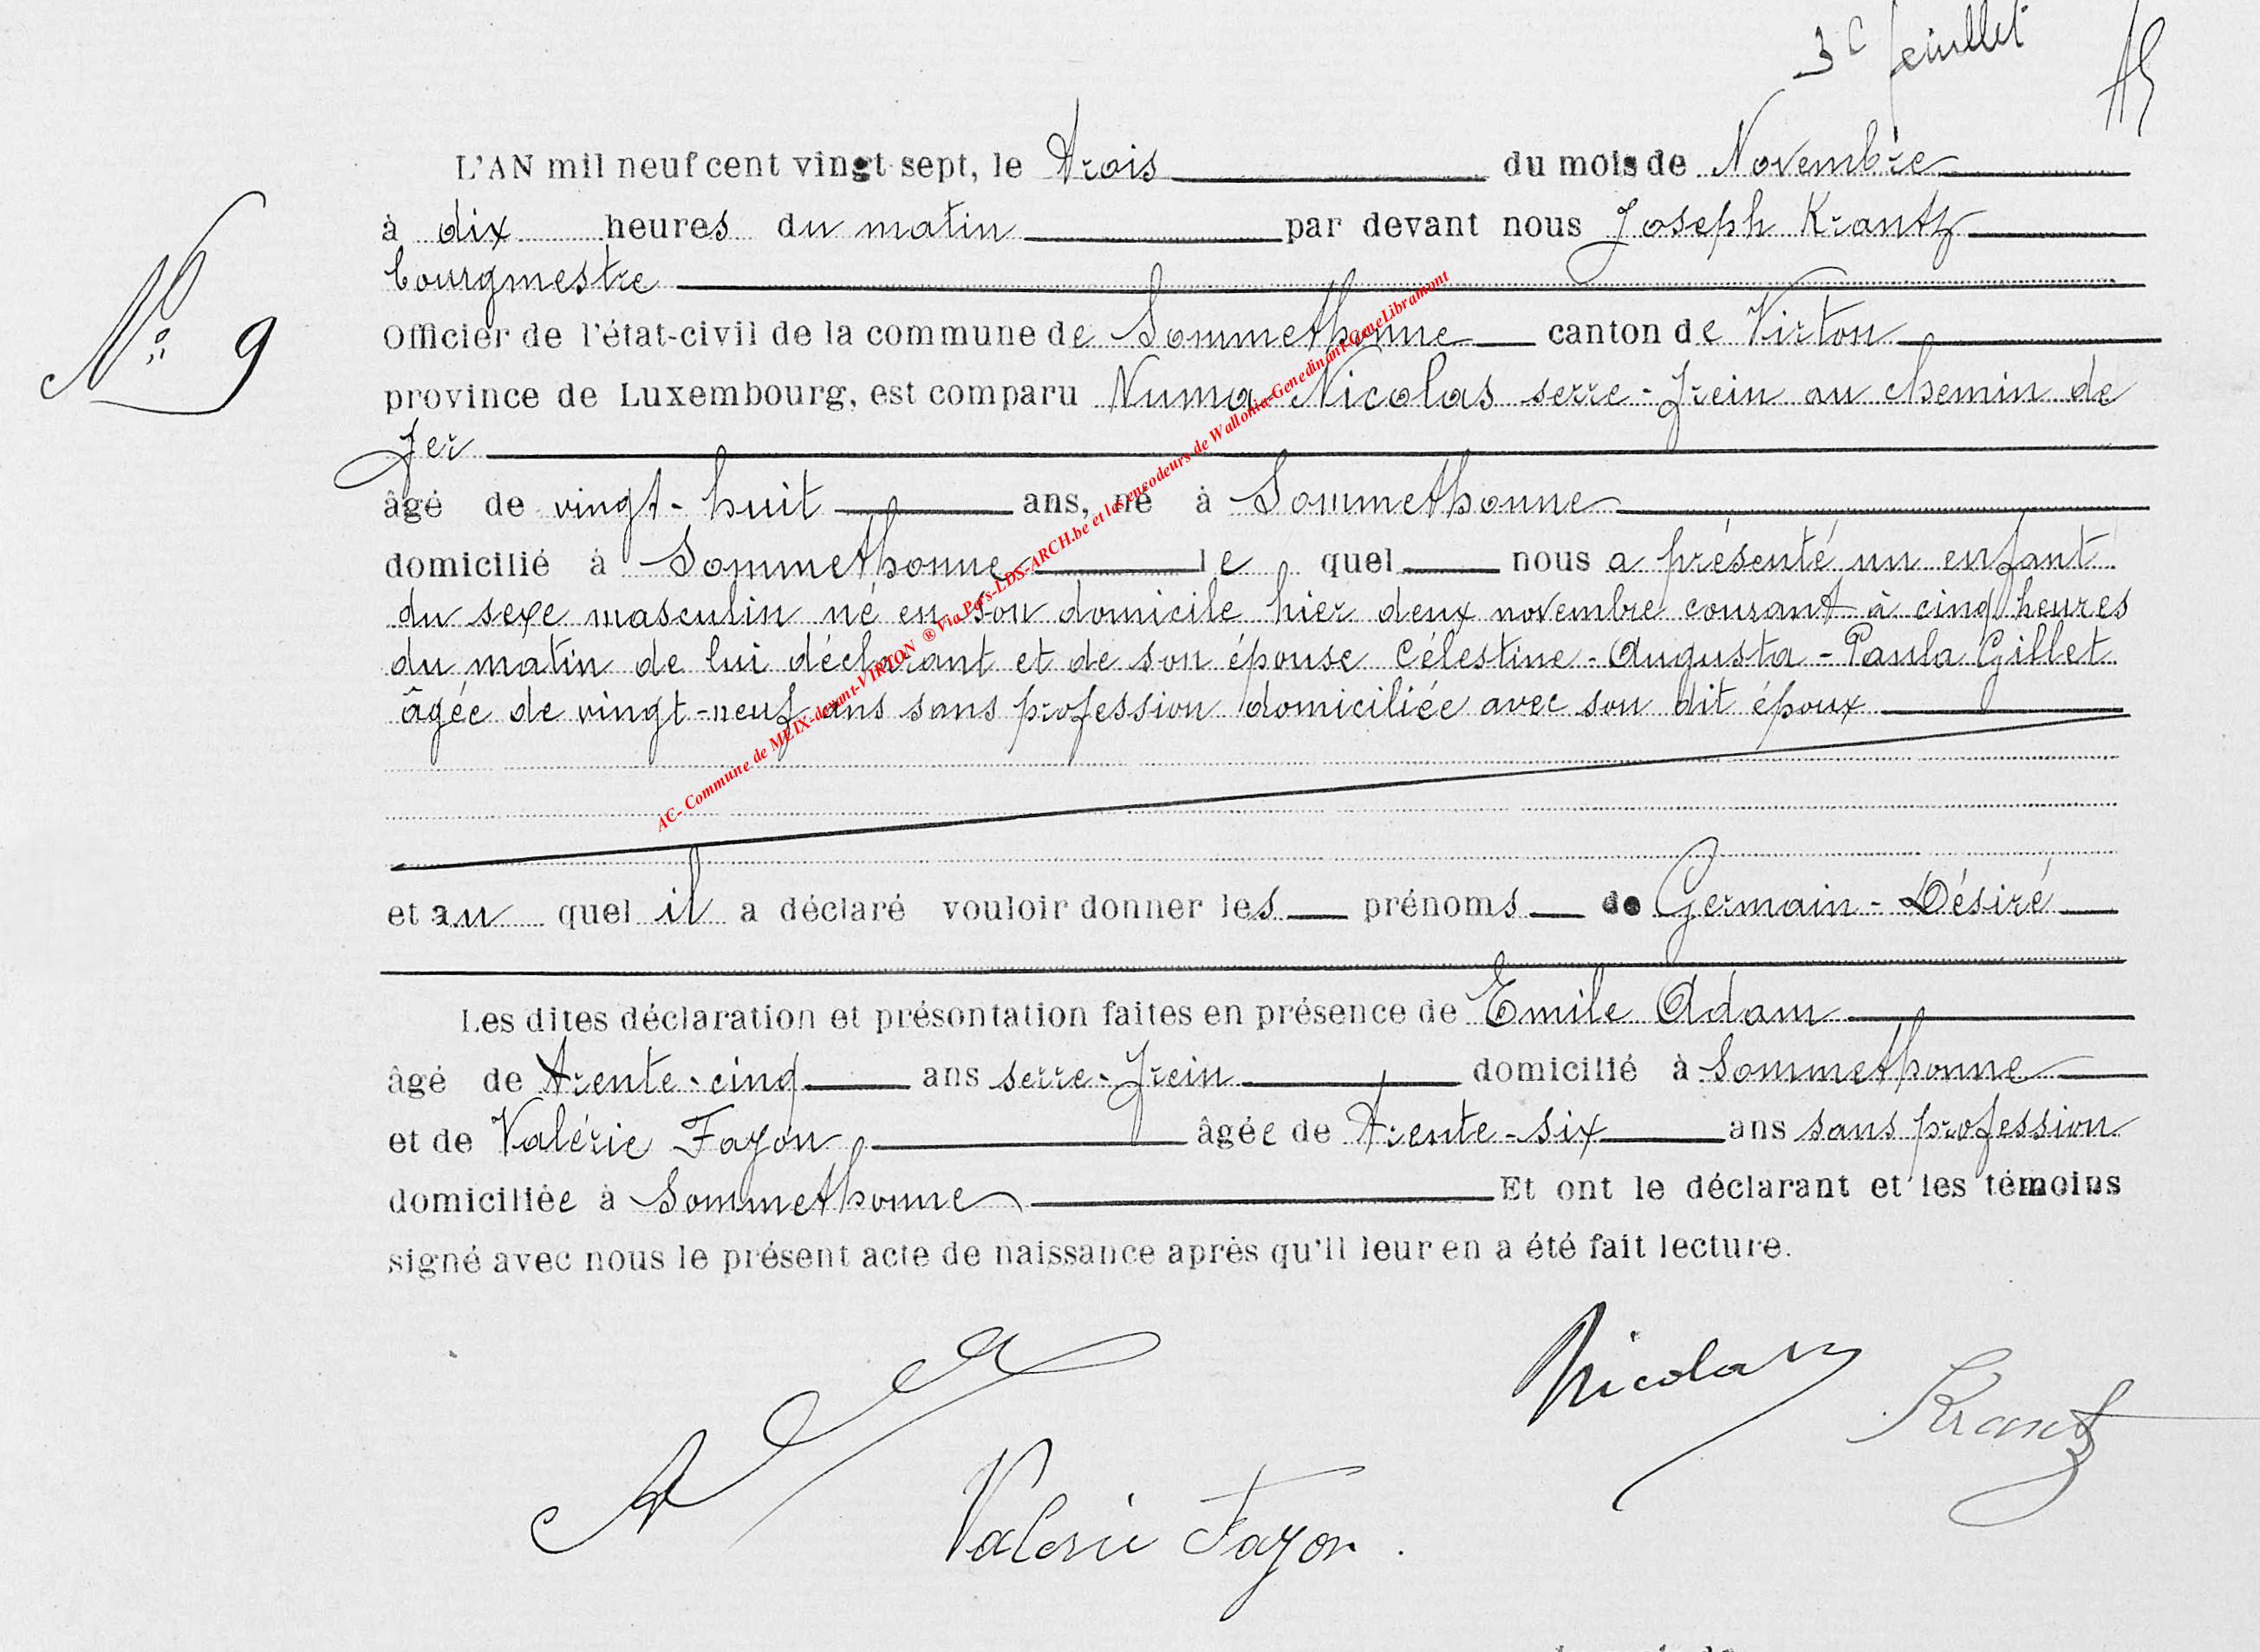 3e feuillet
L'AN mil neuf cent vingt sept, le trois du mois de Novembre
à dix heures du matin par devant nous Joseph Krantz
bourgmestre
Officier de l'état-civil de la commune de Sommethonne canton de Virton
province de Luxembourg, est comparu Numa Nicolas serre-frein au chemin de
fer
âgé de vingt-huit ans, né à Sommethonne
domicilié à Sommethonne lequel nous a présenté un enfant
du sexe masculin né en son domicile hier deux novembre courant à cinq heures
du matin de lui déclarant et de son épouse Célestine-Augusta-Paula Gillet
âgée de vingt-neuf ans sans profession domiciliée avec son dit époux
et au quel il a déclaré vouloir donner les prénoms de Germain-Désiré
Les dites déclaration et présontation faites en présence de Emile Adam
âgé de trente-cinq ans serre-frein domicilié à Sommethonne
et de Valérie Fayon âgée de trente-six ans sans profession
domiciliée à Sommethonne Et ont le déclarant et les témoins
signé avec nous le présent acte de naissance après qu'il leur en a été fait lecture.
No 9
Nicolas
Krantz
Valerie Fayon.
AC- Commune de MEIX-devant-VIRTON ® Via Pers-LDS-ARCH.be et les encodeurs de Wallonia-Genedinant-GeneLibramont